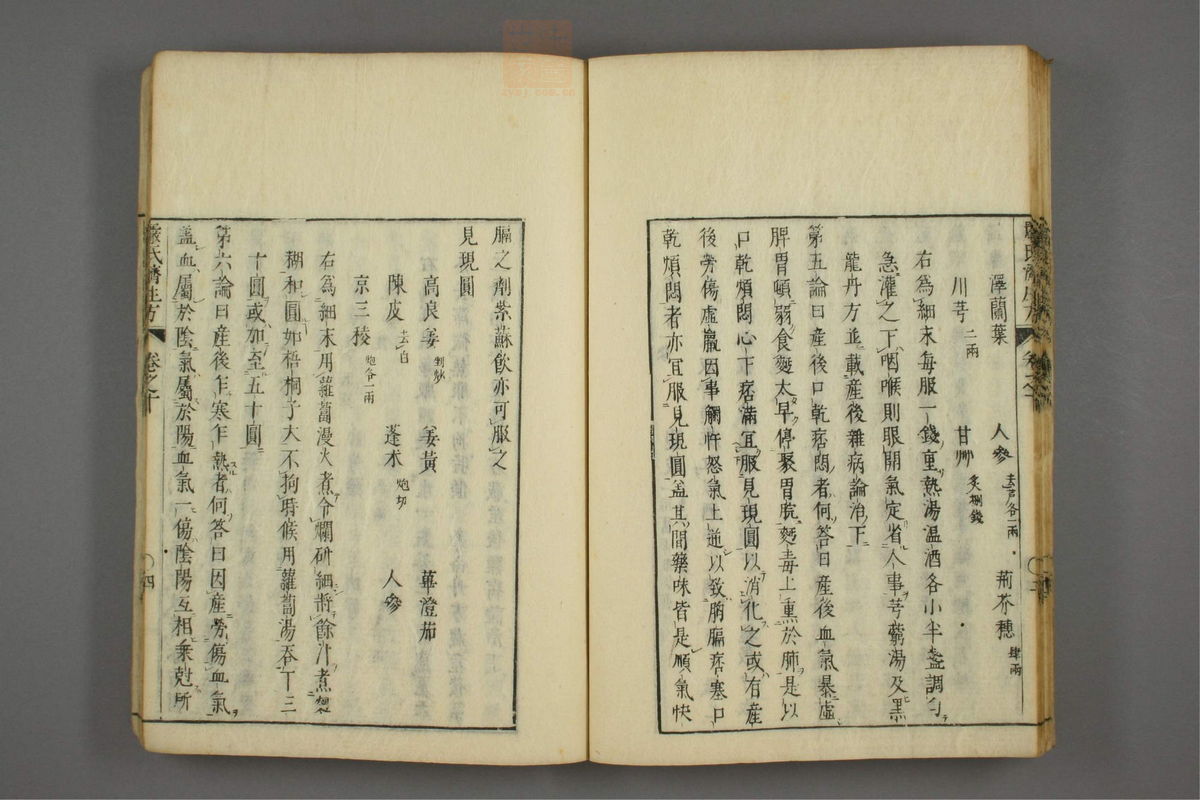 澤蘭葉 人參 去芦各一兩 荊芥穗 肆兩
川芎 二兩 甘艸 炙捌錢
右為細末每服一錢重熱湯温酒各小半盞調勻
急灌之下咽喉則眼開氣定省人事芎藭湯及黑
龍丹方並載產後雜病論治下
第五論曰產後口乾痞悶者何答曰產後血氣暴虛
脾胃頓弱食麪太早停聚胃脘麪毒上熏於肺是以
口乾煩悶心下痞滿宜服見現圓以消化之或有產
後勞傷虛羸因事觸忤怒氣上逆以致胸膈痞塞口
乾煩悶者亦宜服見現圓盖其間藥味皆是順氣快
膈之劑紫蘇飲亦可服之
見現圓
高良姜 剉炒 姜黃 蓽澄茄
陳皮 去白 蓬朮 炮切 人參
京三稜 炮各一兩
右為細末用蘿蔔漫火煮令爛研細將餘汁煮麪
糊和圓如梧桐子大不拘時候用蘿蔔湯吞下三
十圓或加至五十圓
第六論曰產後乍寒乍熱者何答曰因產勞傷血氣
盖血屬於陰氣屬於陽血氣一傷陰陽互相乘尅所
嚴氏濟生方 卷之十 四